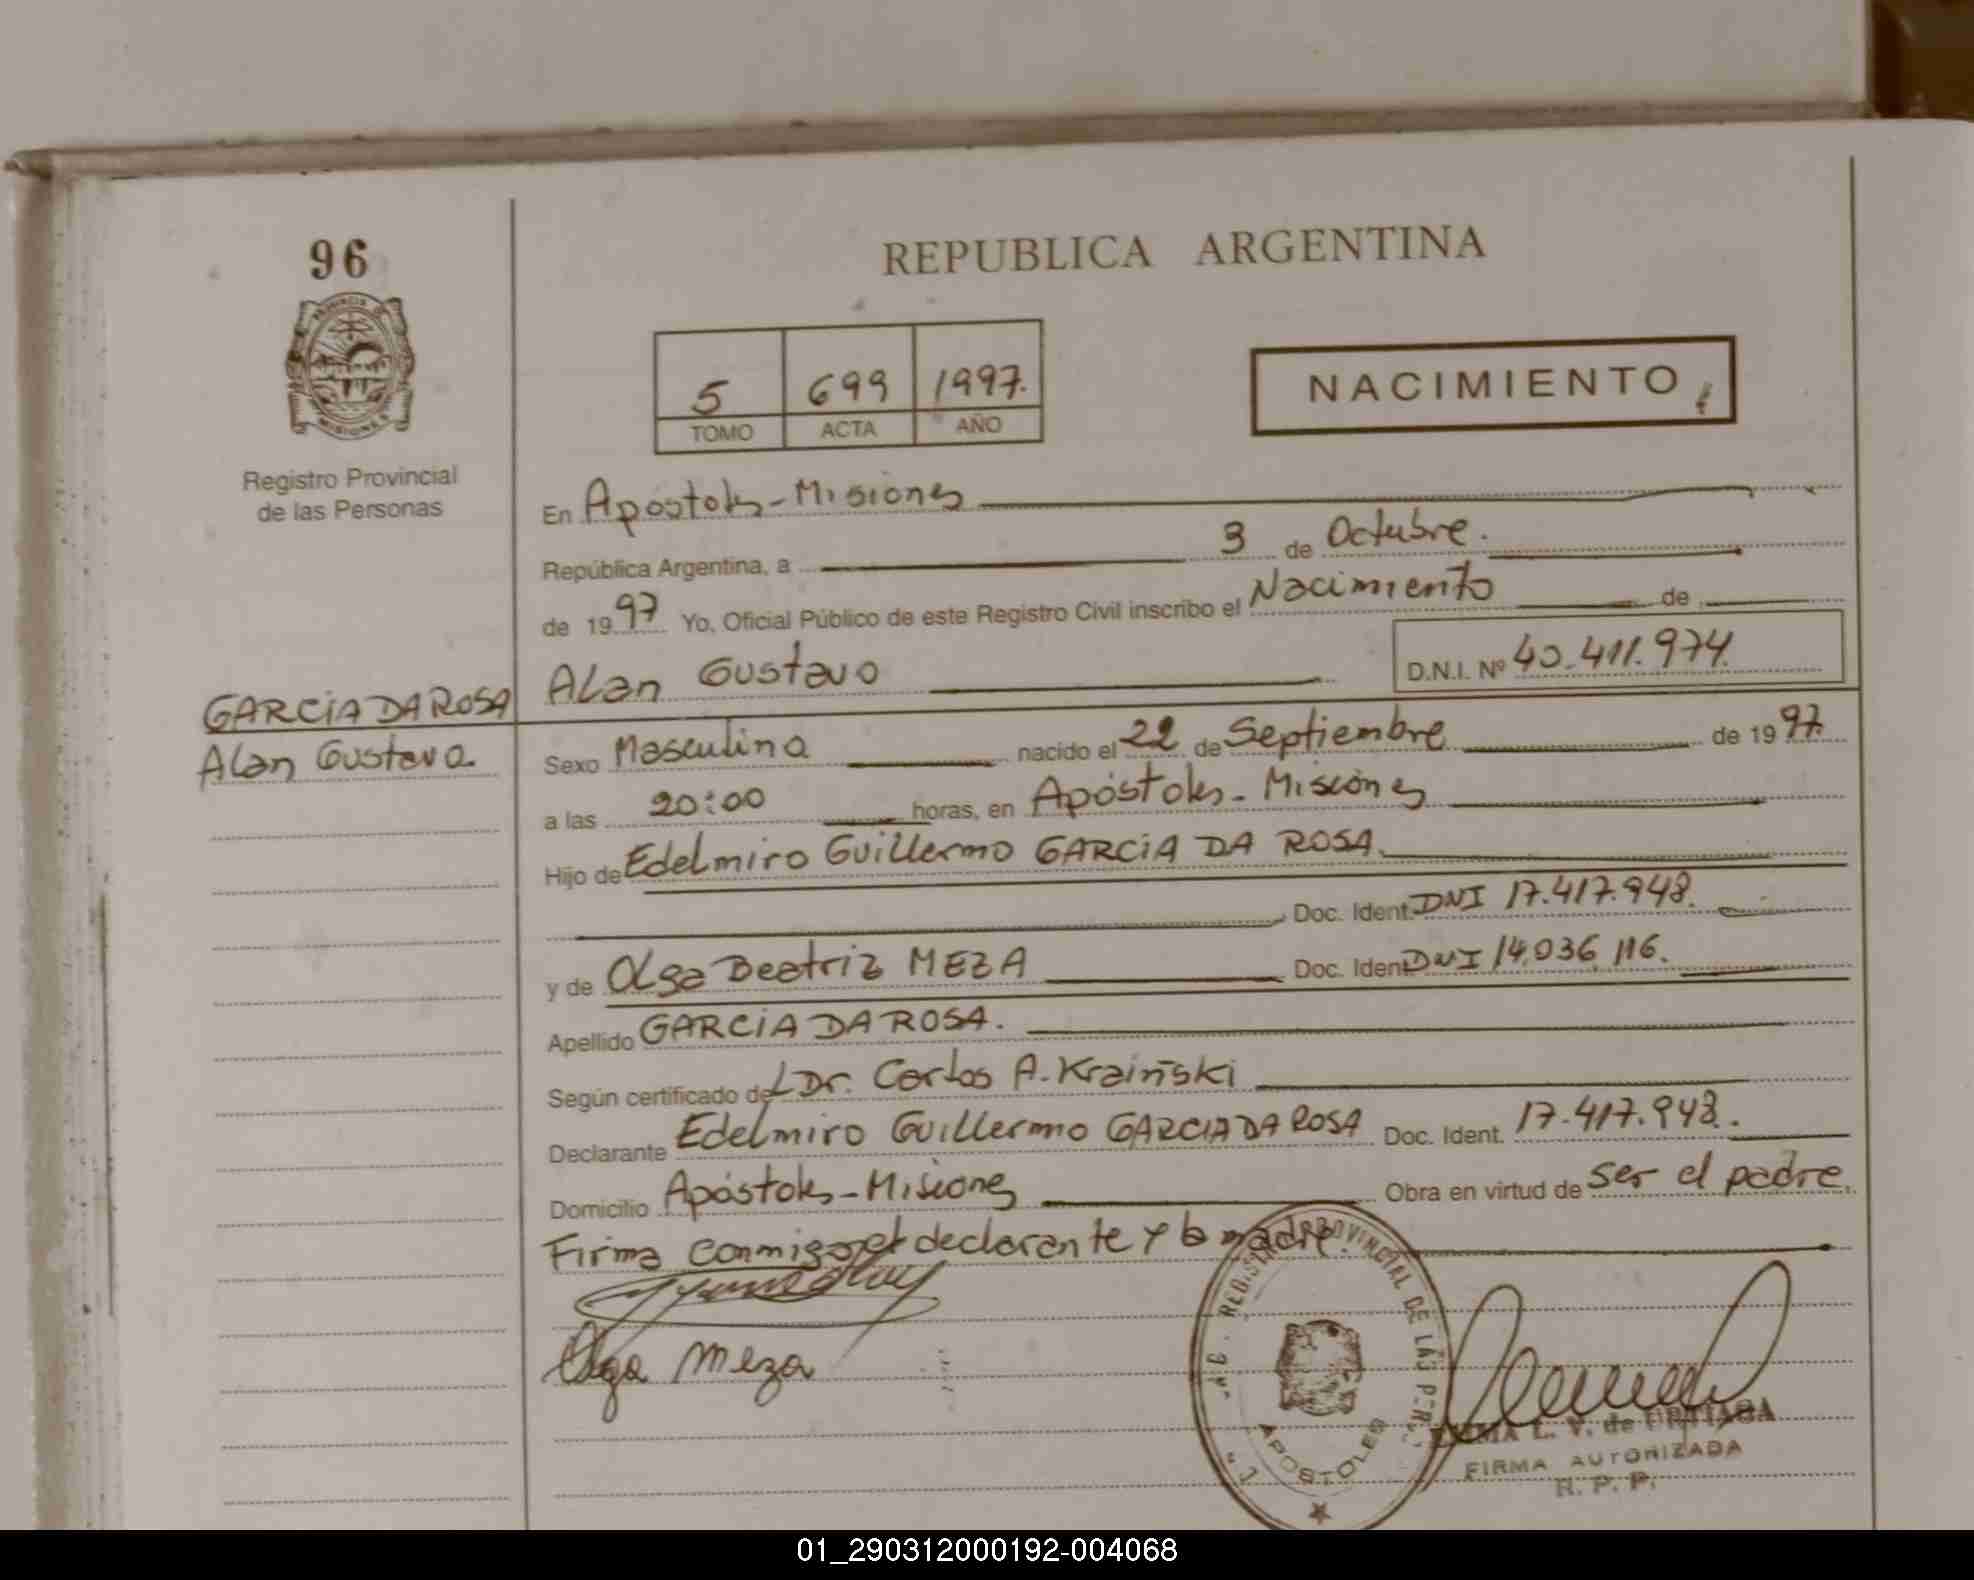 96
REPUBLICA ARGENTINA
5 699 1997.
TOMO ACTA AÑO
NACIMIENTO
PROVINCIA DE
MISIONES
Registro Provincial
de las Personas
En Apóstoles-Misiones
República Argentina, a 3 de Octubre.
de 1997 Yo, Oficial Público de este Registro Civil inscribo el Nacimiento de
Alan Gustavo D.N.I. Nº 40.411.974.
GARCIA DA ROSA
Alan Gustavo.
Sexo Masculino nacido el 22 de Septiembre de 1997.
a las 20:00 horas, en Apóstoles-Misiones
Hijo de Edelmiro Guillermo GARCIA DA ROSA.
Doc. Ident. DNI 17.417.948.
y de Olga Beatriz MEZA Doc. Ident. DNI 14.036.116.
Apellido GARCIA DA ROSA.
Según certificado del Dr. Carlos A. Kraiñski
Declarante Edelmiro Guillermo GARCIA DA ROSA Doc. Ident. 17.417.948.
Domicilio Apóstoles-Misiones Obra en virtud de ser el padre.
Firma conmigo el declarante y la madre.
Olga Meza
REGISTRO PROVINCIAL DE LAS PER
APOSTOLES
L. V. de URTIAGA
FIRMA AUTORIZADA
R. P. P.
01_290312000192-004068